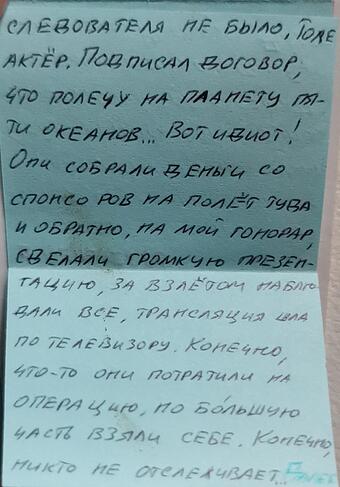 СЛЕДОВАТЕЛЯ НЕ БЫЛО, ТОЖЕ
АКТЁР. ПОДПИСАЛ ДОГОВОР,
ЧТО ПОЛЕЧУ НА ПЛАНЕТУ ПЯ-
ТИ ОКЕАНОВ... ВОТ ИДИОТ!
ОНИ СОБРАЛИ ДЕНЬГИ СО
СПОНСОРОВ НА ПОЛЁТ ТУДА
И ОБРАТНО, НА МОЙ ГОНОРАР,
СДЕЛАЛИ ГРОМКУЮ ПРЕЗЕН-
ТАЦИЮ, ЗА ВЗЛЁТОМ НАБЛЮ-
ДАЛИ ВСЕ, ТРАНСЛЯЦИЯ ШЛА
ПО ТЕЛЕВИЗОРУ. КОНЕЧНО,
ЧТО-ТО ОНИ ПОТРАТИЛИ НА
ОПЕРАЦИЮ, НО БО́ЛЬШУЮ
ЧАСТЬ ВЗЯЛИ СЕБЕ. КОНЕЧНО,
НИКТО НЕ ОТСЛЕЖИВАЕТ...